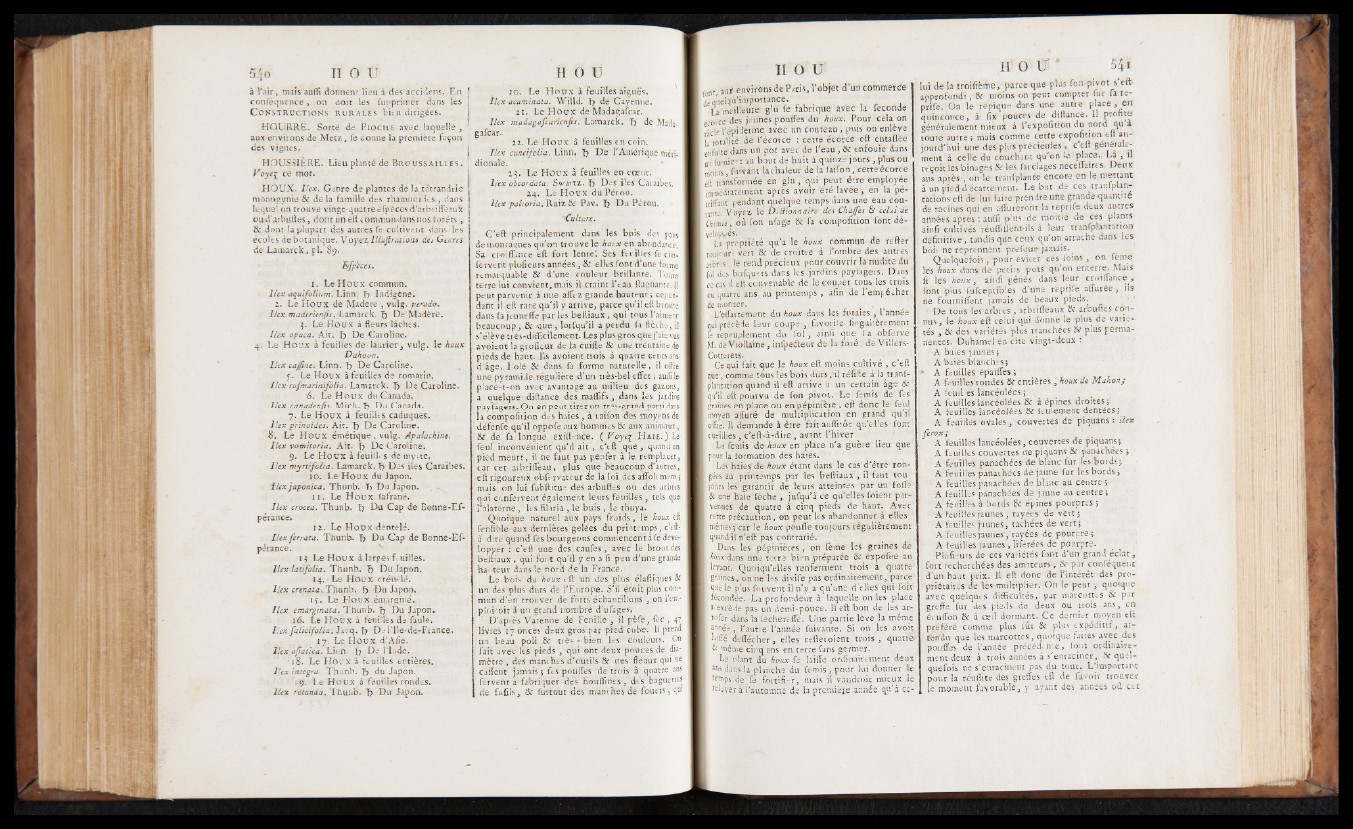 540 H O U
à l'air, mais aussi donnent lieu à des accidens. En
conséquence, on doit les supprimer dans les
CONSTRUCTIONS RURALES bien dirigées.
HOURRE. Sorte de PIOCHE avec laquelle,
aux environs de Metz, se donne la première façon
des vignes.
HOUSSIÈRE. Lieu planté de BROUSSAILLES.
Voyez ce mot.
HOUX. Ilex. Genre de plantes de la tétrandrie
monogynie & de la famille des rhamnoïdes, dans
lequel on trouve vingt-quatre espèces d'arbrisseaux
ou d'arbustes, dont un est commun dans nos forêts,
& dont la plupart des autres se cultivent dans les
écoles de botanique. Voyez Illustrations des Genres
de Lamarck, pl. 89.
Espèces.
1. Le HOUX commun.
Ilex aquifolium. Linn. ♄ Indigène.
2. Le HOUX de Madère, vulg. perado.
Ilex maderiensis. Lamarck. ♄ De Madère.
3. Le HOUX à fleurs lâches.
Ilex opaca. Ait. ♄ De Caroline.
4. Le HOUX à feuilles de laurier, vulg. le houx
Dahoon.
Ilex cassine. Linn. ♄ De Caroline.
5. Le HOUX à feuilles de romarin.
Ilex rosmarinifolia. Lamarck. ♄ De Caroline.
6. Le HOUX du Canada.
Ilex canadensis. Mich. ♄ Du Canada.
7. Le HOUX à feuilles caduques.
Ilex prinoides. Ait. ♄ De Caroline.
8. Le HOUX émétique, vulg. Apalachine.
Ilex vomitoria. Ait. ♄ De Caroline.
9. Le HOUX à feuilles de myrte.
Ilex myrtifolia. Lamarck. ♄ Des îles Caraïbes.
10. Le HOUX du Japon.
Ilex japonica. Thunb. ♄ Du Japon.
11. Le HOUX safrané.
Ilex crocea. Thunb. ♄ Du Cap de Bonne-Es-
pérance.
12. Le HOUX dentelé.
Ilex serrata. Thunb. ♄ Du Cap de Bonne-Es-
pérance.
13. Le HOUX à larges feuilles.
Ilex latifolia. Thunb. ♄ Du Japon.
14. Le HOUX crénelé.
Ilex crenata. Thunb. ♄ Du Japon.
15. Le HOUX émarginé.
Ilex emarginata. Thunb. ♄ Du Japon.
16. Le HOUX à feuilles de saule.
Ilex salicifolia. Jacq. ♄ De l'Ile-de-France.
17. Le HOUX d'Asie.
Ilex asiatica. Linn. ♄ De l'Inde.
18. Le HOUX à feuilles entières.
Ilex integra. Thunb. ♄ du Japon.
19. Le HOUX à feuilles rondes.
Ilex rotunda. Thunb. ♄ Du Japon.
H O U
20. Le HOUX à feuilles aiguës.
Ilex acuminata. Willd. ♄ De Cayenne.
21. Le HOUX de Madagascar.
Ilex madagascariensis. Lamarck. ♄ De Mada-
gascar.
22. Le HOUX à feuilles en coin.
Ilex cuneifolia. Linn. ♄ De l'Amérique méri-
dionale.
23. Le HOUX à feuilles en cœur.
Ilex obcordata. Swartz. ♄ Des îles Caraïbes.
24. Le HOUX du Pérou.
Ilex paltoria. Ruiz & Pav. ♄ Du Pérou.
Culture.
C'est principalement dans les bois des pays
de montagnes qu'on trouve le houx en abondance.
Sa croissance est fort lente. Ses feuilles se con-
servent plusieurs années, & elles sont d'une forme
remarquable & d'une couleur brillante. Toute
terre lui convient, mais il craint l'eau stagnante. Il
peut parvenir à une assez grande hauteur; cepen-
dant il est rare qu'il y arrive, parce qu'il est brouté
dans sa jeunesse par les bestiaux, qui tous l'aiment
beaucoup, & que, lorsqu'il a perdu sa flèche, il
s'élève très-difficilement. Les plus gros que j'aie vus
avoient la grosseur de la cuisse & une trentaine de
pieds de haut. Ils avoient trois à quatre cents ans
d'âge. Isolé & dans sa forme naturelle, il offre
une pyramide régulière d'un très-bel effet; aussi le
place-t-on avec avantage au milieu des gazons,
à quelque distance des massifs, dans les jardins
paysagers. On en peut tirer un très-grand parti dans
la composition des haies, à raison des moyens de
défense qu'il oppose aux hommes & aux animaux,
& de sa longue existence. (Voyez HAIE.) Le
seul inconvénient qu'il ait, c'est que, quand un
pied meurt, il ne faut pas penser à le remplacer,
car cet arbrisseau, plus que beaucoup d'autres,
est rigoureux observateur de la loi des assolemens;
mais on lui substitue des arbustes ou des arbres
qui conservent également leurs feuilles, tels que
l'alaterne, les filaria, le buis, le thuya.
Quoique naturel aux pays froids, le houx est
sensible aux dernières gelées du printemps, c'est-
à-dire quand ses bourgeons commencent à se déve-
lopper: c'est une des causes, avec le brout des
bestiaux, qui font qu'il y en a si peu d'une grande
hauteur dans le nord de la France.
Le bois du houx est un des plus élastiques &
un des plus durs de l'Europe. S'il étoit plus com-
mun d'en trouver de forts échantillons, on l'em-
ploieroit à un grand nombre d'usages.
D'après Varenne de Fenille, il pèse, sec, 47
livres 17 onces deux gros par pied cube. Il prend
un beau poli & très-bien les couleurs. On
fait avec les pieds, qui ont deux pouces de dia-
mètre, des manches d'outils & des fléaux qui ne
cassent jamais; ses pousses de trois à quatre ans
servent à fabriquer des houssines, des baguettes
de fusils, & surtout des manches de fouets, qui
H O U
sont, aux environs de Paris, l'objet d'un commerce
de quelqu'importance.
La meilleure glu se fabrique avec la seconde
écorce des jeunes pousses du houx. Pour cela on
racle l'épiderme avec un couteau, puis on enlève
la totalité de l'écorce: cette écorce est entassée
ensuite dans un pot avec de l'eau, & enfouie dans
un fumier: au bout de huit à quinze jours, plus ou
moins, suivant la chaleur de la saison, cette écorce
est transformée en glu, qui peut être employée
immédiatement après avoir été lavée, en la pé-
trissant pendant quelque temps dans une eau cou-
rante. Voyez le Dictionnaire des Chasses & celui de
Chimie, où son usage & sa composition sont dé-
veloppés.
La propriété qu'a le houx commun de rester
toujours vert & de croître à l'ombre des autres
arbres, le rend précieux pour couvrir la nudité du
sol des bosquets dans les jardins paysagers. Dans
ce cas il est convenable de le couper tous les trois
ou quatre ans au printemps, afin de l'empêcher
de monter.
L'essartement du houx dans les forêts, l'année
qui précède leur coupe, favorise singulièrement
le repeuplement du sol, ainsi que l'a observé
M. de Violaine, inspecteur de la forêt de Villers-
Cotterets.
Ce qui fait que le houx est moins cultivé, c'est
que, comme tous les bois durs, il résiste à la trans-
plantation quand il est arrivé à un certain âge &
qu'il est pourvu de son pivot. Le semis de ses
graines en place ou en pépinière, est donc le seul
moyen assuré de multiplication en grand qu'il
offre. Il demande à être fait aussitôt qu'elles sont
cueillies, c'est-à-dire, avant l'hiver.
Le semis de houx en place n'a guère lieu que
pour la formation des haies.
Les haies de houx étant dans le cas d'être ron-
gées au printemps par les bestiaux, il faut tou-
jours les garantir de leurs atteintes par un fossé
& une haie sèche, jusqu'à ce qu'elles soient par-
venues de quatre à cinq pieds de haut. Avec
cette précaution, on peut les abandonner à elles-
mêmes; car le houx pousse toujours régulièrement
quand il n'est pas contrarié.
Dans les pépinières, on sème les graines de
houx dans une terre bien préparée & exposée au
levant. Quoiqu'elles renferment trois à quatre
graines, on ne les divise pas ordinairement, parce
que le plus souvent il n'y a qu'une d'elles qui soit
fécondée. La profondeur à laquelle on les place
n'excède pas un demi-pouce. Il est bon de les ar-
roser dans la sécheresse. Une partie lève la même
année, l'autre l'année suivante. Si on les avoit
laissé dessécher, elles resteroient trois, quatre
& même cinq ans en terre sans germer.
Le plant du houx se laisse ordinairement deux
ans dans la planche du semis, pour lui donner le
temps de se fortifier, mais il vaudroit mieux le
relever à l'automne de la première année qu'à ce-
H O U 541
lui de la troisième, parce que plus son pivot s'est
approfondi, & moins on peut compter sur sa re-
prise. On le repique dans une autre place, en
quinconce, à six pouces de distance. Il profite
généralement mieux à l'exposition du nord qu'à
toute autre; mais comme cette exposition est au-
jourd'hui une des plus précieuses, c'est générale-
ment à celle du couchant qu'on le place. Là, il
reçoit les binages & les sarclages nécessaires. Deux
ans après, on le transplante encore en le mettant
à un pied d'écartement. Le but de ces transplan-
tations est de lui faire prendre une grande quantité
de racines qui en assureront la reprise deux autres
années après: aussi plus de moitié de ces plants
ainsi cultivés réussissent-ils à leur transplantation
définitive, tandis que ceux qu'on arrache dans les
bois ne reprennent presque jamais.
Quelquefois, pour éviter ces soins, on sème
les houx dans de petits pots qu'on enterre. Mais
si les houx, ainsi gênés dans leur croissance,
sont plus susceptibles d'une reprise assurée, ils
ne fournissent jamais de beaux pieds.
De tous les arbres, arbrisseaux & arbustes con-
nus, le houx est celui qui donne le plus de varié-
tés, & des variétés plus tranchées & plus perma-
nentes. Duhamel en cite vingt-deux:
A baies jaunes;
A baies blanches;
A feuilles épaisses;
A feuilles rondes & entières, houx de Mahon;
A feuilles lancéolées;
A feuilles lancéolées & à épines droites;
A feuilles lancéolées & seulement dentées;
A feuilles ovales, couvertes de piquans: ilex
ferox;
A feuilles lancéolées, couvertes de piquans;
A feuilles couvertes de piquans & panachées;
A feuilles panachées de blanc sur les bords;
A feuilles panachées de jaune sur les bords;
A feuilles panachées de blanc au centre;
A feuilles panachées de jaune au centre;
A feuilles à bords & épines pourpres;
A feuilles jaunes, rayées de vert;
A feuilles jaunes, tachées de vert;
A feuilles jaunes, rayées de pourpre;
A feuilles jaunes, liserées de pourpre.
Plusieurs de ces variétés sont d'un grand éclat,
sont recherchées des amateurs, & par conséquent
d'un haut prix. Il est donc de l'intérêt des pro-
priétaires de les multiplier. On le peut, quoique
avec quelques difficultés, par marcottes & par
greffe sur des pieds de deux ou trois ans, en
écusson & à œil dormant. Ce dernier moyen est
préféré comme plus sûr & plus expéditif, at-
tendu que les marcottes, quoique faites avec des
pousses de l'année précédente, sont ordinaire-
ment deux à trois années à s'enraciner, & quel-
quefois ne s'enracinent pas du tout. L'important
pour la réussite des greffes est de savoir trouver
le moment favorable, y ayant des années où cet